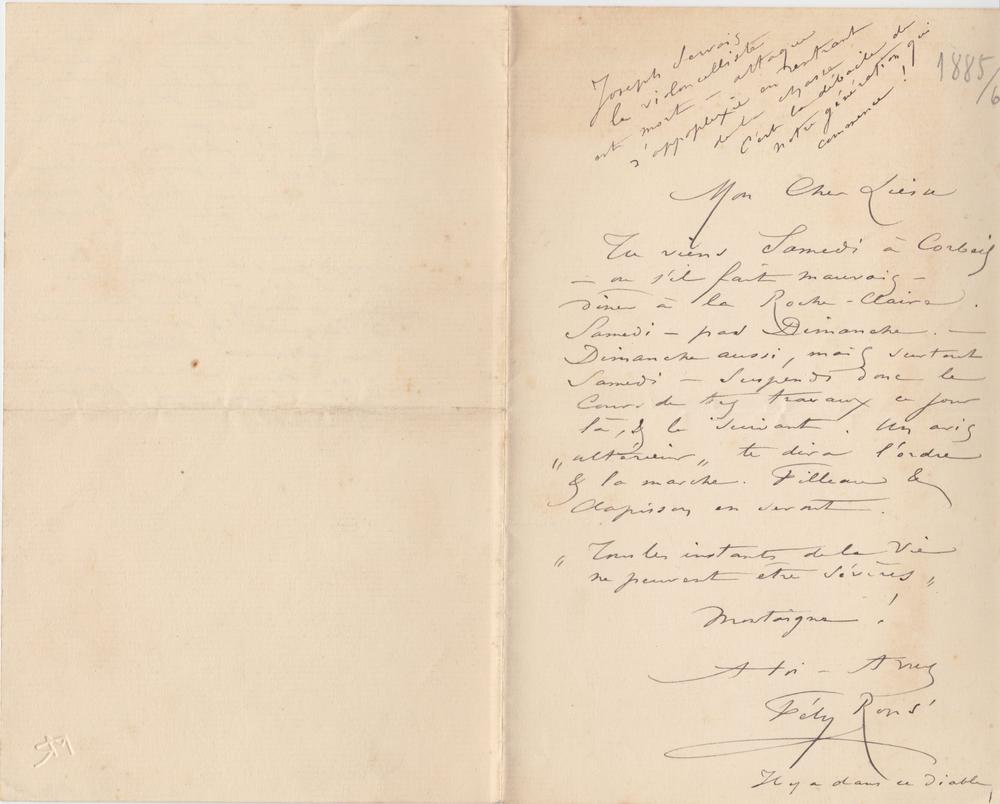 Joseph Servais
le violoncelliste
est mort – attaque
d'appoplexie en rentrant
de la chasse
C'est la débâcle de
notre génération qui
commence !
1885/6
Mon Cher Liesse
Tu viens Samedi à Corbeil
– ou s'il fait mauvais –
diner à la Roche-Claire.
Samedi – pas Dimanche. –
Dimanche aussi, mais surtout
Samedi – Suspends donc le
Cours de tes travaux ce jour
là, & le suivant. Un avis
„ ultérieur „ te dira l'ordre
& la marche. Filleau &
Clapisson en seront.
„ Tous les instants de la Vie
ne peuvent etre sévères „
Montaigne !
A toi – Amy
Fély Rops
Il y a dans ce Diable